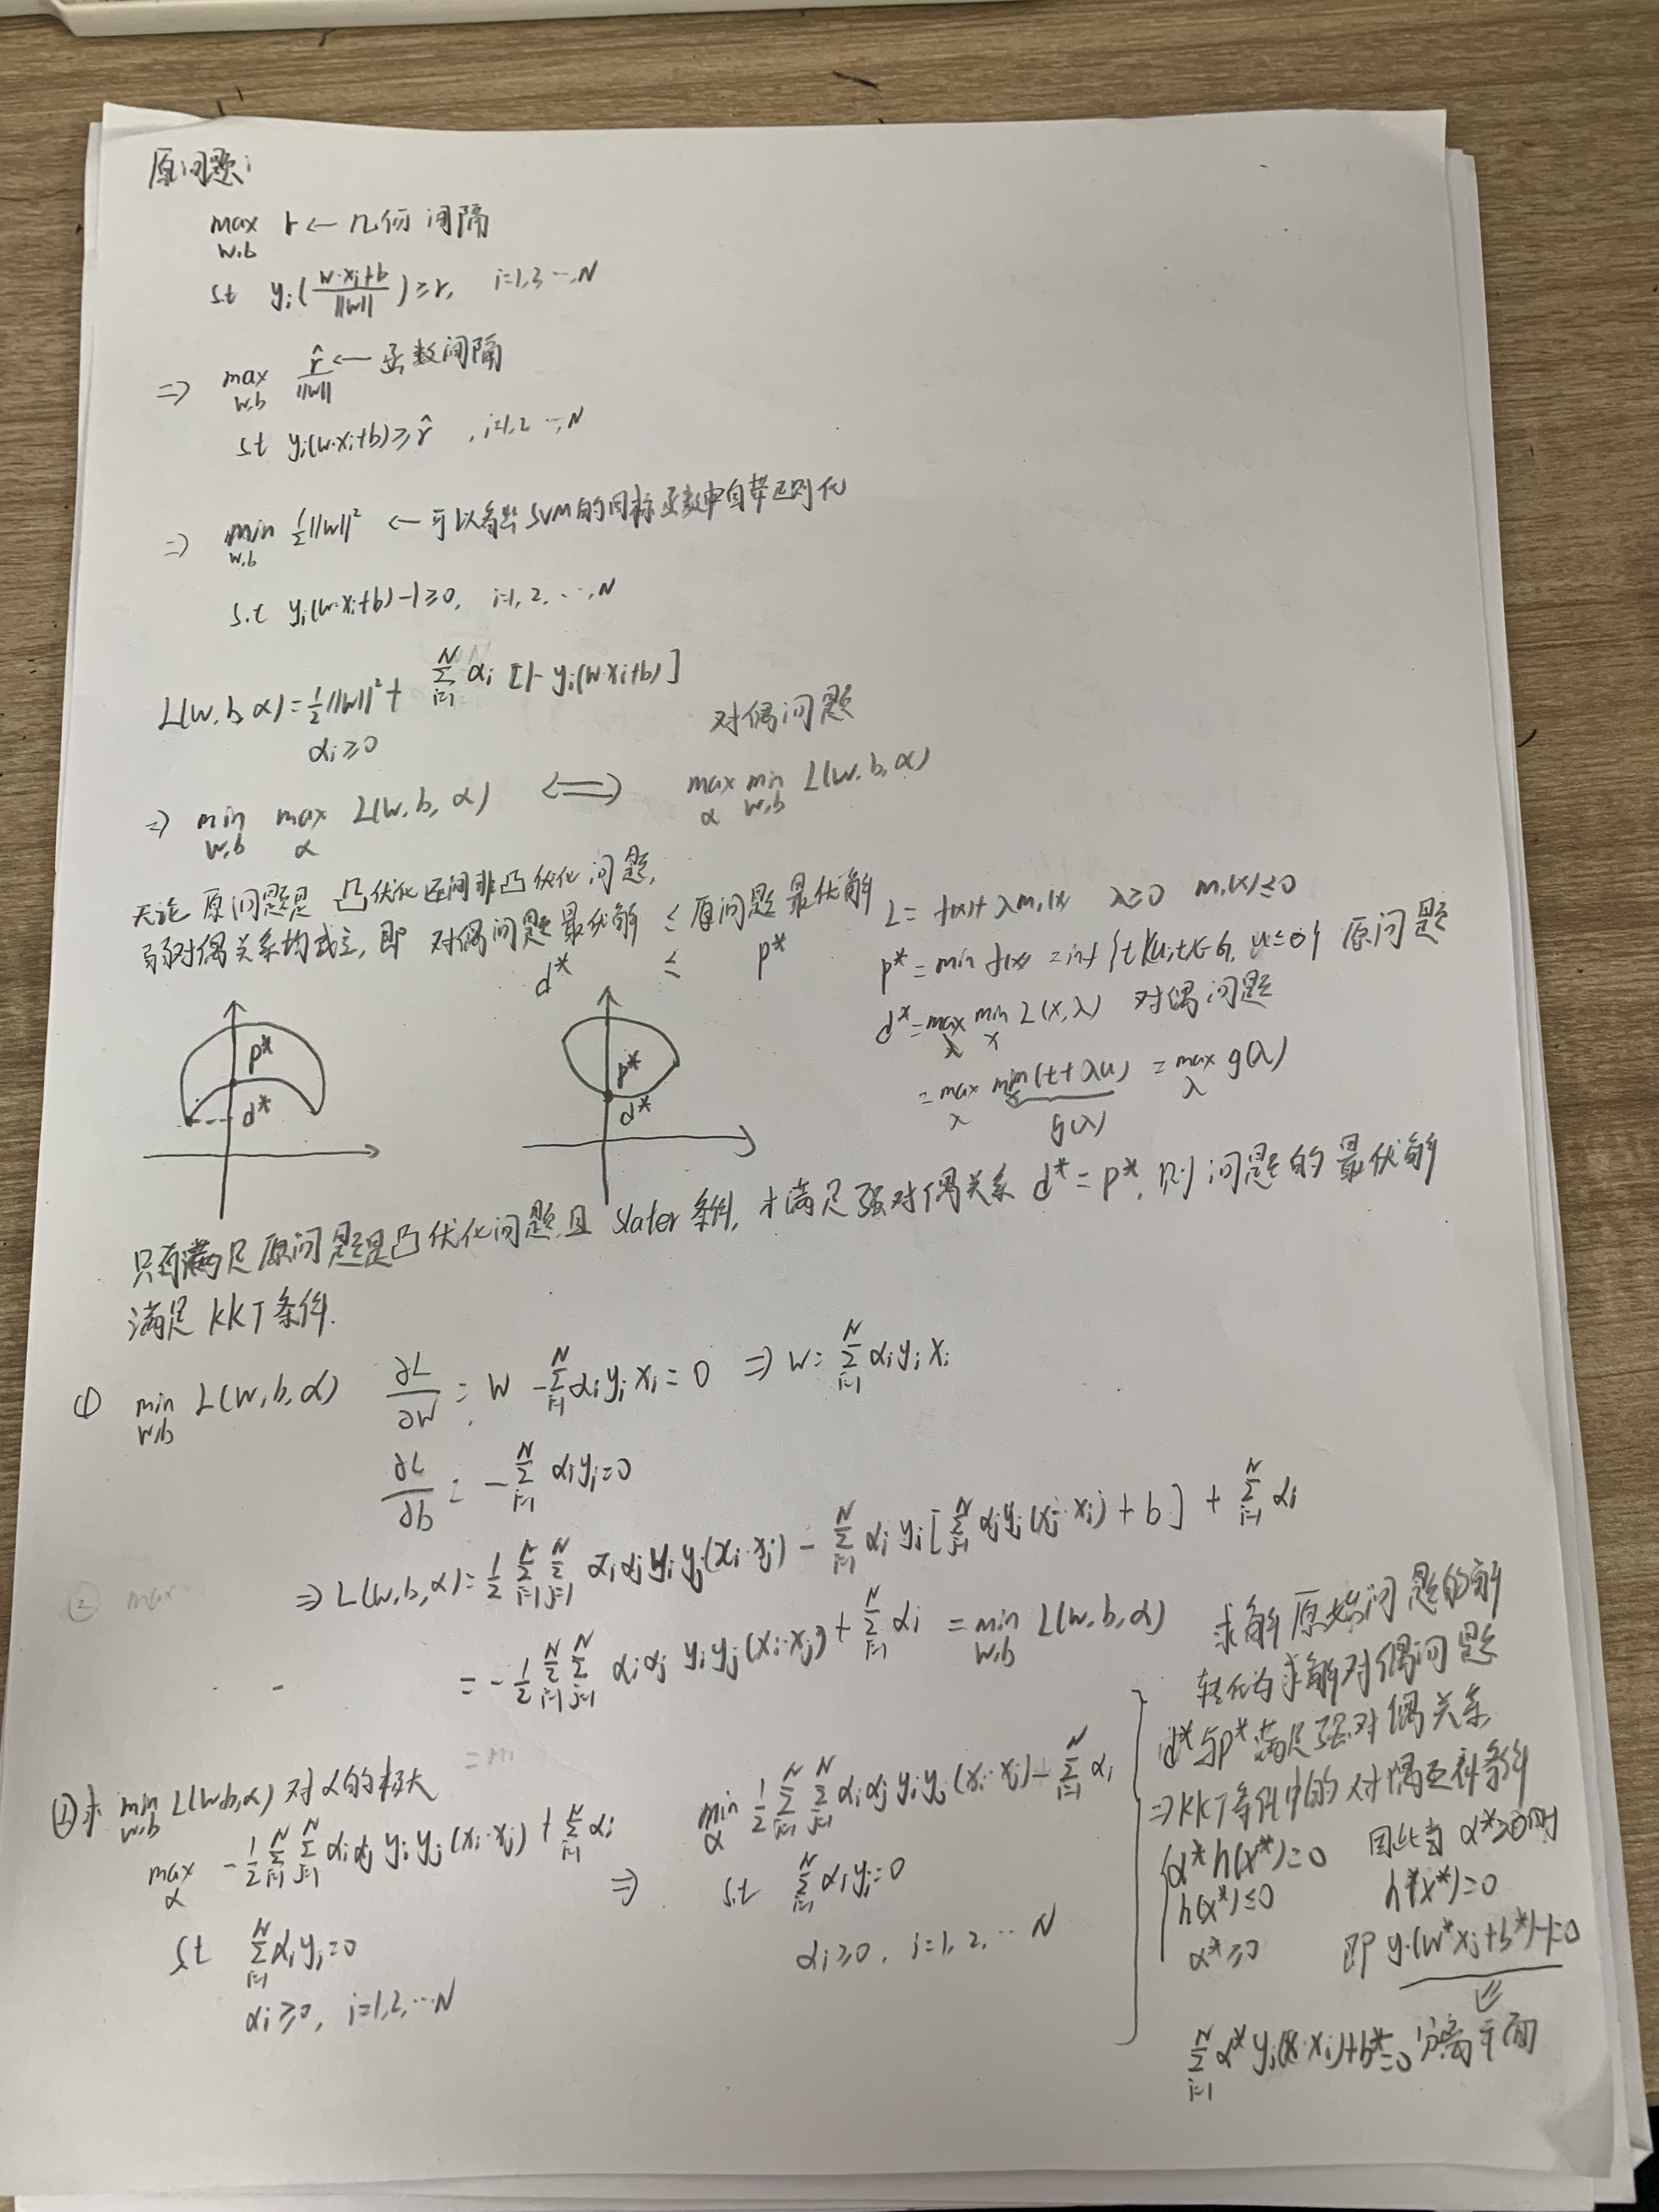 原问题:
max r ← 几何间隔
w,b
s.t y_i( (w·x_i+b)/||w|| ) ≥ r, i=1,3 ⋯,N
⇒ max r̂/||w|| ← 函数间隔
w,b
s.t y_i(w·x_i+b) ≥ r̂ , i=1,2 ⋯,N
⇒ min ½||w||² ← 可以看出 SVM的目标函数中自带正则化
w,b
s.t y_i(w·x_i+b)-1≥0, i=1,2,⋯,N
L(w,b,α)=½||w||²+ Σ_{i=1}^N α_i [1-y_i(w·x_i+b)]
α_i≥0
对偶问题
⇒ min max L(w,b,α) ⟺ max min L(w,b,α)
w,b α α w,b
无论 原问题是 凸优化还是非凸优化 问题,
弱对偶关系均成立, 即 对偶问题最优解 ≤ 原问题最优解
d* ≤ p*
L= f(x)+λm_1(x) λ≥0 m_1(x)≤0
p*=min f(x) =inf{t|(u,t)∈G, u≤0} 原问题
d*=max min L(x,λ) 对偶问题
λ x
=max min(t+λu) =max g(λ)
λ λ
g(λ)
p*
d*
p*
d*
只有满足原问题是凸优化问题,且 slater 条件, 才满足强对偶关系 d*=p*, 则 问题的最优解
满足 KKT条件.
① min L(w,b,α) ∂L/∂w = w - Σ_{i=1}^N α_i y_i x_i = 0 ⇒ w= Σ_{i=1}^N α_i y_i x_i
w,b
∂L/∂b = - Σ_{i=1}^N α_i y_i=0
② max
⇒ L(w,b,α)=½ Σ_{i=1}^N Σ_{j=1}^N α_i α_j y_i y_j(x_i·x_j) - Σ_{i=1}^N α_i y_i[Σ_{j=1}^N α_j y_j(x_j·x_i)+b] + Σ_{i=1}^N α_i
= -½ Σ_{i=1}^N Σ_{j=1}^N α_i α_j y_i y_j (x_i·x_j)+ Σ_{i=1}^N α_i = min L(w,b,α)
w,b
②求 min L(w,b,α) 对α的极大
w,b
max -½ Σ_{i=1}^N Σ_{j=1}^N α_i α_j y_i y_j (x_i·x_j) + Σ_{i=1}^N α_i
α
s.t Σ_{i=1}^N α_i y_i=0
α_i≥0, i=1,2,⋯N
⇒ min ½ Σ_{i=1}^N Σ_{j=1}^N α_i α_j y_i y_j (x_i·x_j) - Σ_{i=1}^N α_i
α
s.t Σ_{i=1}^N α_i y_i=0
α_i≥0, i=1,2,⋯N
求解原始问题的解
转化为求解对偶问题
d*与p*满足强对偶关系
⇒KKT条件中的对偶互补条件
α*h(x*)=0 因此当 α*>0时
h(x*)≤0 h*(x*)=0
α*≥0 即 y_j(w*x_j+b*)-1=0
Σ_{i=1}^N α*y_i(x·x_i)+b*=0 分离平面